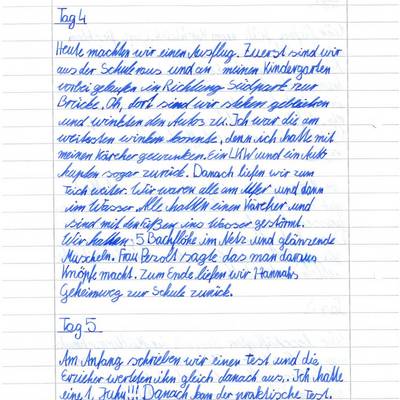 Tag 4
Heute machten wir einen Ausflug. Zuerst sind wir
aus der Schule raus und an meinen Kindergarten
vorbei gelaufen in Richtung Südpark zur
Brücke. Oh, dort sind wir stehen geblieben
und winkten den Autos zu. Ich war die am
weitesten winken konnte, denn ich hatte mit
meinen Kärcher gewunken. Ein LKW und ein Auto
hupten sogar zurück. Danach liefen wir zum
Teich weiter. Wir waren alle am Ufer und dann
im Wasser. Alle hatten einen Kärcher und
sind mit den Füßen ins Wasser gestürmt.
Wir hatten 5 Bachflöhe im Netz und glänzende
Muscheln. Frau Perolt sagte das man daraus
Knöpfe macht. Zum Ende liefen wir Hannahs
Geheimweg zur Schule zurück.
Tag 5
Am Anfang schrieben wir einen Test und die
Erzieher werteten ihn gleich danach aus. Ich hatte
eine 1. Juhu!!! Danach kam der praktische Test.